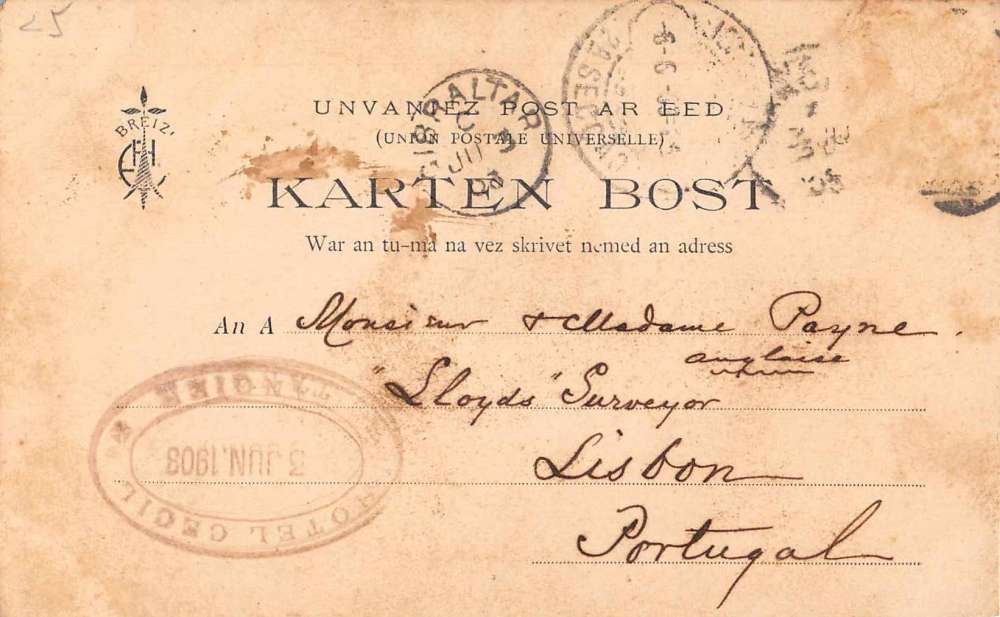 25
UNVANIEZ POST AR BED
(UNION POSTALE UNIVERSELLE)
BREIZ
KARTEN BOST
War an tu-ma na vez skrivet nemed an adress
GIBRALTAR
C
JU 3
03
2A SEC
6-6
An A Monsieur & Madame Payne.
anglaise
"Lloyds" Surveyor
Lisbon
Portugal
HOTEL CECIL TANGIER
3 JUN. 1903